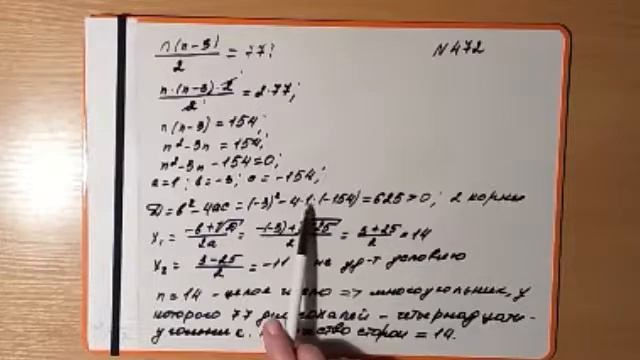 n(n-3)/2 = 77;
N 472
n·(n-3)·2/2 = 2·77;
n(n-3) = 154;
n²-3n = 154;
n²-3n-154=0;
a=1; b=-3; c=-154;
D=b²-4ac=(-3)²-4·1·(-154)=625>0; 2 корня
x₁ = -b+√D/2a = -(-3)+√625/2 = 3+25/2 = 14
x₂ = 3-25/2 = -11 не уд-т условию
n=14 - целое число => многоугольник, у
которого 77 диагоналей - четырнадцати-
угольник. сторон = 14.